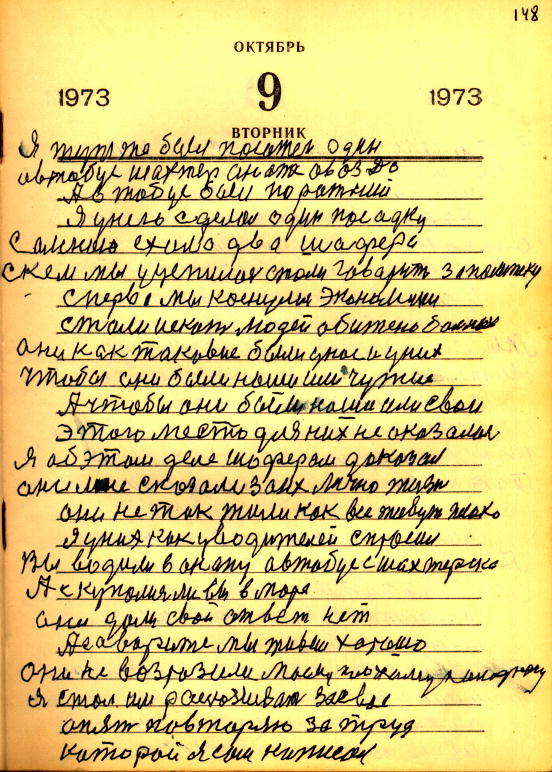 148
ОКТЯБРЬ
1973 9 1973
ВТОРНИК
Я тут же был один
автобус шахтер
Автобус был порожний
Я у него сделал один посадку
Самною ехало два шофера
скем мы уцепились стали говарить заполитеку
сперва мы коснулися Экономики
стали искать людей обижено
они как таковые были унас иуних
Чтобы они были наши или чужие
А чтобы они были наши или свои
Этого место для них не оказалос
Я об этом деле шоферам доказал
они мне сказали заих лично жизн
они не так жили как все живут
Я уних как уводителей спросил
Вы водили в анапу автобус сшахтерска
А скупалися ли вы в море
они дали свой ответ нет
А говорите мы живем хорошо
они не возразили моему
Я стал им расказиват засвое
опят повтаряю за труд
каторой я сам написал